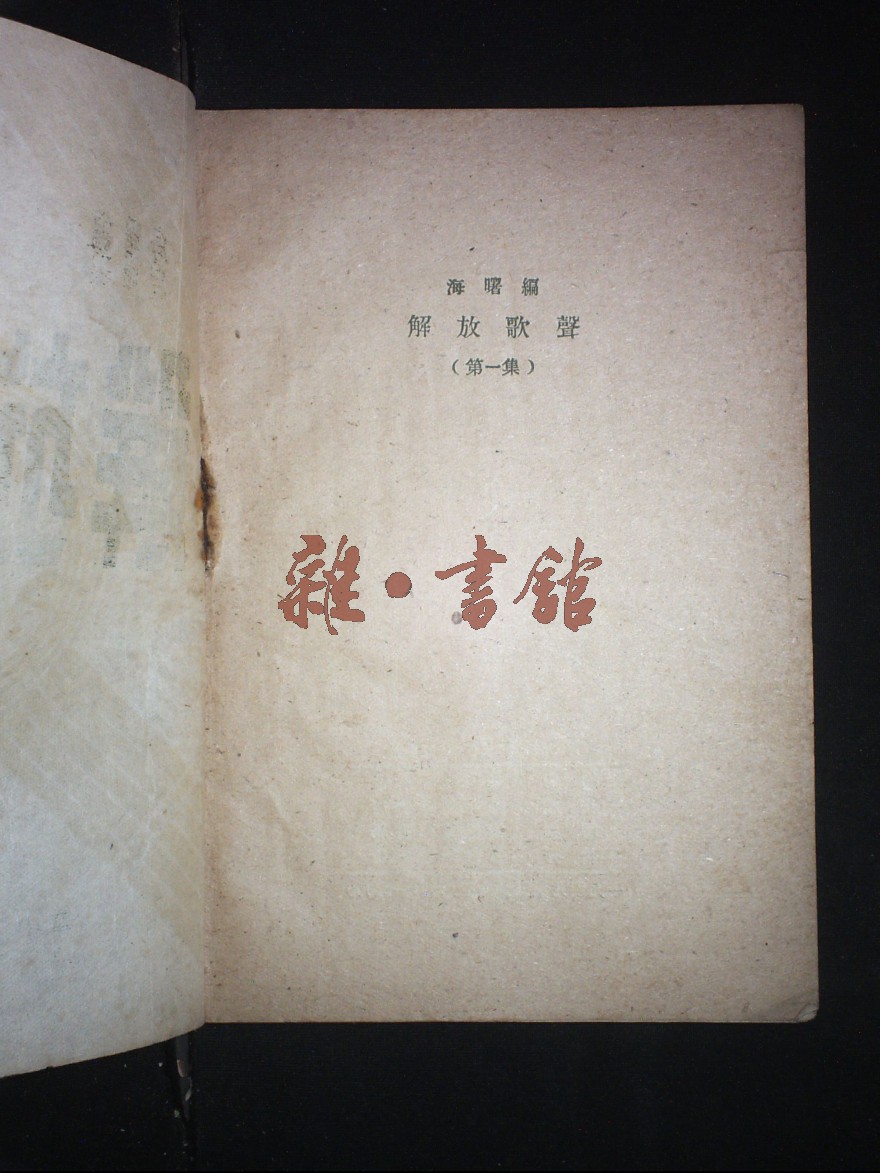 海曙編
解放歌聲
（第一集）
雜·書館